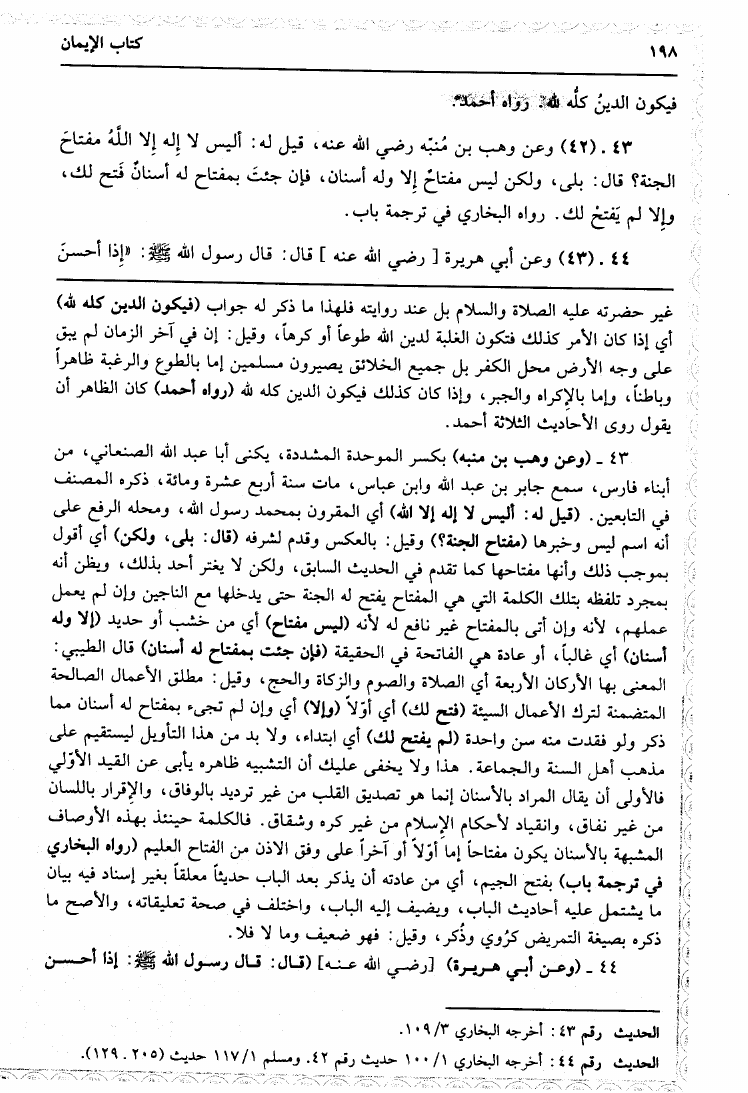 ١٩٨ كتاب الإيمان
فيكون الدينُ كلُّه لله. رَوَاه أحمد.
٤٣ . (٤٢) وعن وهب بن مُنبّه رضي الله عنه، قيل له: أليس لا إِله إِلا اللَّهُ مفتاحَ
الجنة؟ قال: بلى، ولكن ليس مفتاحٌ إِلا وله أسنان، فإن جئتَ بمفتاح له أسنانٌ فَتح لك،
وإِلا لم يَفتحْ لك. رواه البخاري في ترجمة باب.
٤٤ . (٤٣) وعن أبي هريرة [ رضي الله عنه ] قال: قال رسول الله ﷺ: «إِذا أحسنَ
غير حضرته عليه الصلاة والسلام بل عند روايته فلهذا ما ذكر له جواب (فيكون الدين كله لله)
أي إذا كان الأمر كذلك فتكون الغلبة لدين الله طوعاً أو كرهاً، وقيل: إن في آخر الزمان لم يبق
على وجه الأرض محل الكفر بل جميع الخلائق يصيرون مسلمين إما بالطوع والرغبة ظاهراً
وباطناً، وإما بالإكراه والجبر، وإذا كان كذلك فيكون الدين كله لله (رواه أحمد) كان الظاهر أن
يقول روى الأحاديث الثلاثة أحمد.
٤٣ ـ (وعن وهب بن منبه) بكسر الموحدة المشددة، يكنى أبا عبد الله الصنعاني، من
أبناء فارس، سمع جابر بن عبد الله وابن عباس، مات سنة أربع عشرة ومائة، ذكره المصنف
في التابعين. (قيل له: أليس لا إله إلا الله) أي المقرون بمحمد رسول الله، ومحله الرفع على
أنه اسم ليس وخبرها (مفتاح الجنة؟) وقيل: بالعكس وقدم لشرفه (قال: بلى، ولكن) أي أقول
بموجب ذلك وأنها مفتاحها كما تقدم في الحديث السابق، ولكن لا يغتر أحد بذلك، ويظن أنه
بمجرد تلفظه بتلك الكلمة التي هي المفتاح يفتح له الجنة حتى يدخلها مع الناجين وإن لم يعمل
عملهم، لأنه وإن أتى بالمفتاح غير نافع له لأنه (ليس مفتاح) أي من خشب أو حديد (إلا وله
أسنان) أي غالباً، أو عادة هي الفاتحة في الحقيقة (فإن جئت بمفتاح له أسنان) قال الطيبي:
المعنى بها الأركان الأربعة أي الصلاة والصوم والزكاة والحج، وقيل: مطلق الأعمال الصالحة
المتضمنة لترك الأعمال السيئة (فتح لك) أي أوّلاً (وإلا) أي وإن لم تجيء بمفتاح له أسنان مما
ذكر ولو فقدت منه سن واحدة (لم يفتح لك) أي ابتداء، ولا بد من هذا التأويل ليستقيم على
مذهب أهل السنة والجماعة. هذا ولا يخفى عليك أن التشبيه ظاهره يأبى عن القيد الأوّلي
فالأولى أن يقال المراد بالأسنان إنما هو تصديق القلب من غير ترديد بالوفاق، والإقرار باللسان
من غير نفاق، وانقياد لأحكام الإسلام من غير كره وشقاق. فالكلمة حينئذ بهذه الأوصاف
المشبهة بالأسنان يكون مفتاحاً إما أوّلاً أو آخراً على وفق الاذن من الفتاح العليم (رواه البخاري
في ترجمة باب) بفتح الجيم، أي من عادته أن يذكر بعد الباب حديثاً معلقاً بغير إسناد فيه بيان
ما يشتمل عليه أحاديث الباب، ويضيف إليه الباب، واختلف في صحة تعليقاته، والأصح ما
ذكره بصيغة التمريض كرُوي وذُكر، وقيل: فهو ضعيف وما لا فلا.
٤٤ ـ (وعن أبي هريرة) [رضي الله عنه] (قال: قال رسول الله ﷺ: إذا أحسن
الحديث رقم ٤٣: أخرجه البخاري ١٠٩/٣.
الحديث رقم ٤٤: أخرجه البخاري ١٠٠/١ حديث رقم ٤٢. ومسلم ١١٧/١ حديث (٢٠٥ . ١٢٩).